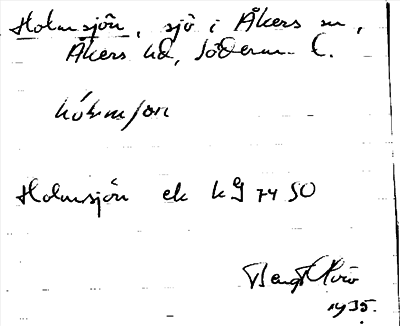 Holmsjön, sjö i Åkers sn,
Åkers hd, Söderm. l.
hólmsjön
Holmsjön ek kg 74 SO
Bengt
1935.